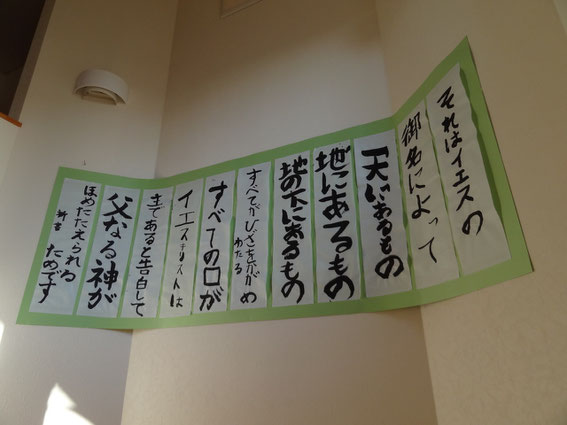 それはイエスの
御名によって
天にあるもの
地にあるもの
地の下にあるもの
すべてがひざをかがめ
わたる
すべての口が
イエスキリストは
主であると告白して
父なる神が
ほめたたえられる
ためです